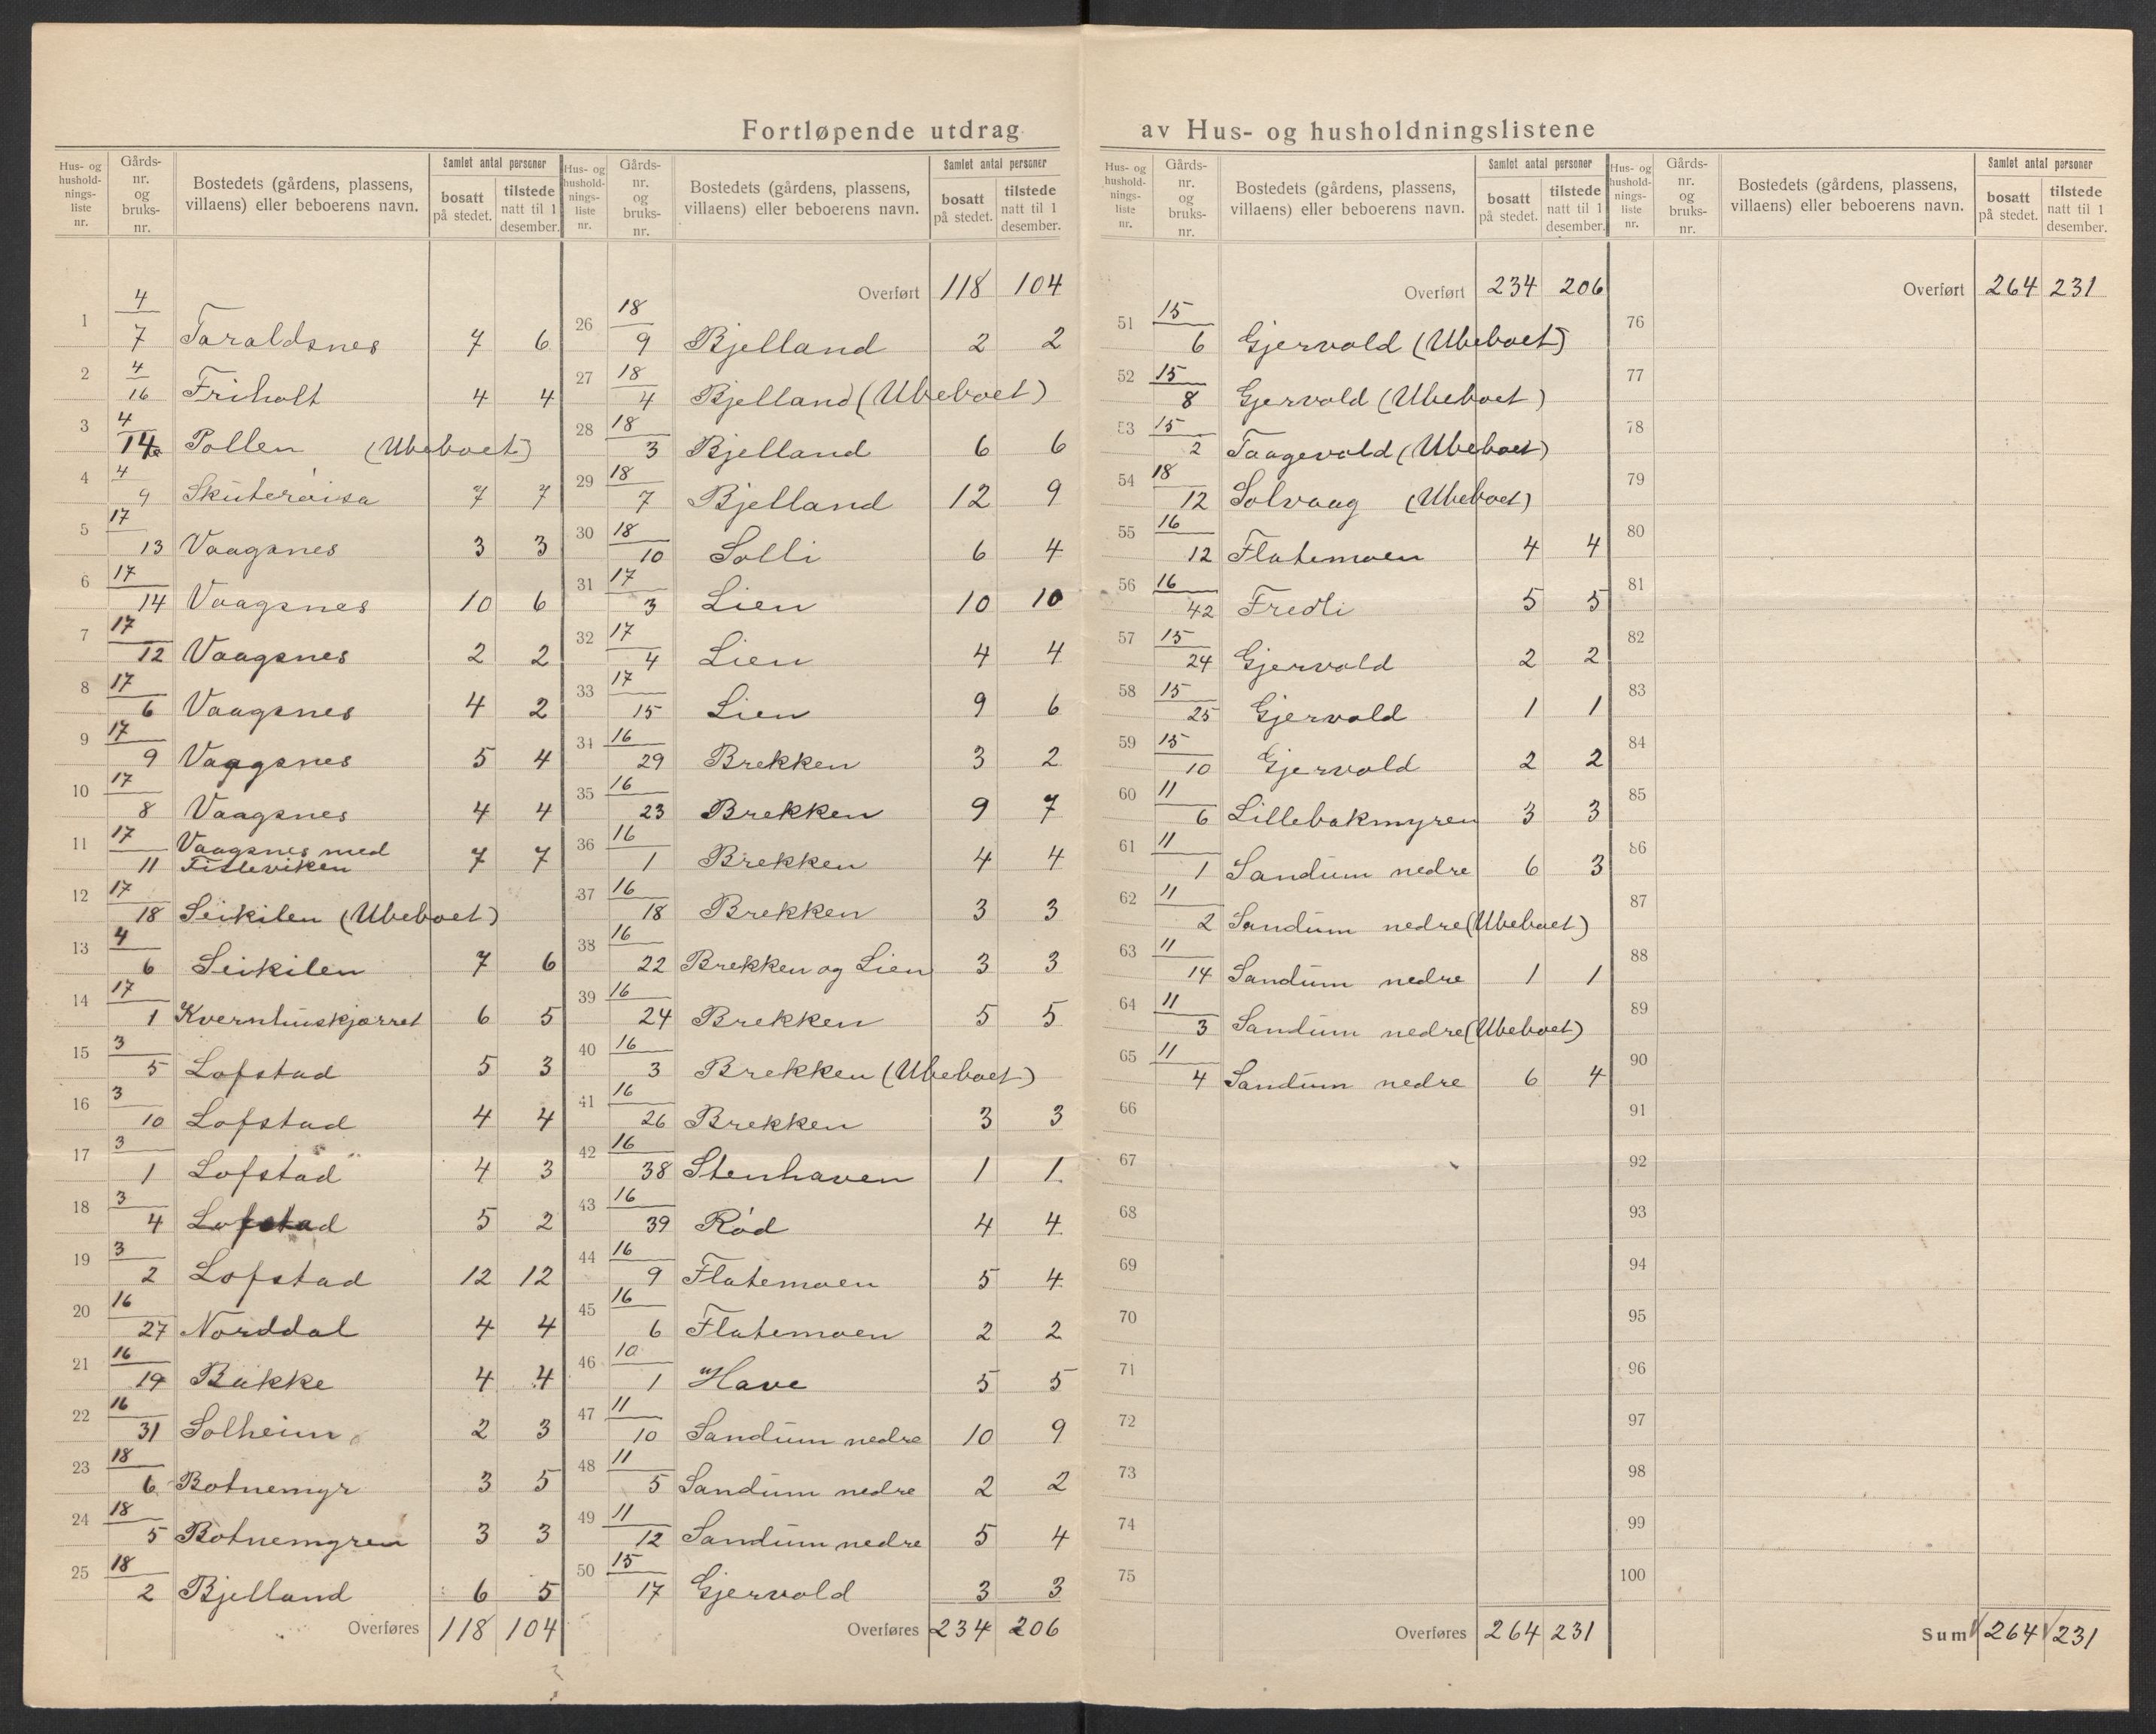 Fortløpende utdrag av Hus- og husholdningslistene
Hus- og husholdnings-liste nr. | Gårds-nr. og bruks-nr. | Bostedets (gårdens, plassens, villaens) eller beboerens navn. | Samlet antal personer bosatt på stedet. | tilstede natt til 1 desember.
1 4/7 Taraldsnes 7 6
2 4/16 Friholt 4 4
3 4/14 Pollen (Ubeboet)
4 4/9 Skuterøisa 7 7
5 17/13 Vaagsnes 3 3
6 17/14 Vaagsnes 10 6
7 17/12 Vaagsnes 2 2
8 17/6 Vaagsnes 4 2
9 17/9 Vaagsnes 5 4
10 17/8 Vaagsnes 4 4
11 17/11 Vaagsnes med Fisleviken 7 7
12 17/18 Seikilen (Ubeboet)
13 4/6 Seikilen 7 6
14 17/1 Kvernhuskjærret 6 5
15 3/5 Lofstad 5 3
16 3/10 Lofstad 4 4
17 3/1 Lofstad 4 3
18 3/4 Lofstad 5 2
19 3/2 Lofstad 12 12
20 16/27 Norddal 4 4
21 16/19 Bakke 4 4
22 16/31 Solheim 2 3
23 18/6 Botnemyr 3 5
24 18/5 Botnemyren 3 3
25 18/2 Bjelland 6 5
Overføres 118 104
Hus- og husholdnings-liste nr. | Gårds-nr. og bruks-nr. | Bostedets (gårdens, plassens, villaens) eller beboerens navn. | Samlet antal personer bosatt på stedet. | tilstede natt til 1 desember.
Overført 118 104
26 18/9 Bjelland 2 2
27 18/4 Bjelland (Ubeboet)
28 18/3 Bjelland 6 6
29 18/7 Bjelland 12 9
30 18/10 Solli 6 4
31 17/3 Lien 10 10
32 17/4 Lien 4 4
33 17/15 Lien 9 6
34 16/29 Brekken 3 2
35 16/23 Brekken 9 7
36 16/1 Brekken 4 4
37 16/18 Brekken 3 3
38 16/22 Brekken og Lien 3 3
39 16/24 Brekken 5 5
40 16/3 Brekken (Ubeboet)
41 16/26 Brekken 3 3
42 16/38 Stenhaven 1 1
43 16/39 Rød 4 4
44 16/9 Flatemoen 5 4
45 16/6 Flatemoen 2 2
46 10/1 Have 5 5
47 11/10 Sandum nedre 10 9
48 11/5 Sandum nedre 2 2
49 11/12 Sandum nedre 5 4
50 15/17 Gjervold 3 3
Overføres 234 206
Hus- og husholdnings-liste nr. | Gårds-nr. og bruks-nr. | Bostedets (gårdens, plassens, villaens) eller beboerens navn. | Samlet antal personer bosatt på stedet. | tilstede natt til 1 desember.
Overført 234 206
51 15/6 Gjervold (Ubeboet)
52 15/8 Gjervold (Ubeboet)
53 15/2 Taagevold (Ubeboet)
54 18/12 Solvaag (Ubeboet)
55 16/12 Flatemoen 4 4
56 16/42 Fredli 5 5
57 15/24 Gjervold 2 2
58 15/25 Gjervold 1 1
59 15/10 Gjervold 2 2
60 11/6 Lillebakmyren 3 3
61 11/1 Sandum nedre 6 3
62 11/2 Sandum nedre (Ubeboet)
63 11/14 Sandum nedre 1 1
64 11/3 Sandum nedre (Ubeboet)
65 11/4 Sandum nedre 6 4
66
67
68
69
70
71
72
73
74
75
Overføres 264 231
Hus- og husholdnings-liste nr. | Gårds-nr. og bruks-nr. | Bostedets (gårdens, plassens, villaens) eller beboerens navn. | Samlet antal personer bosatt på stedet. | tilstede natt til 1 desember.
Overført 264 231
76
77
78
79
80
81
82
83
84
85
86
87
88
89
90
91
92
93
94
95
96
97
98
99
100
Sum 264 231